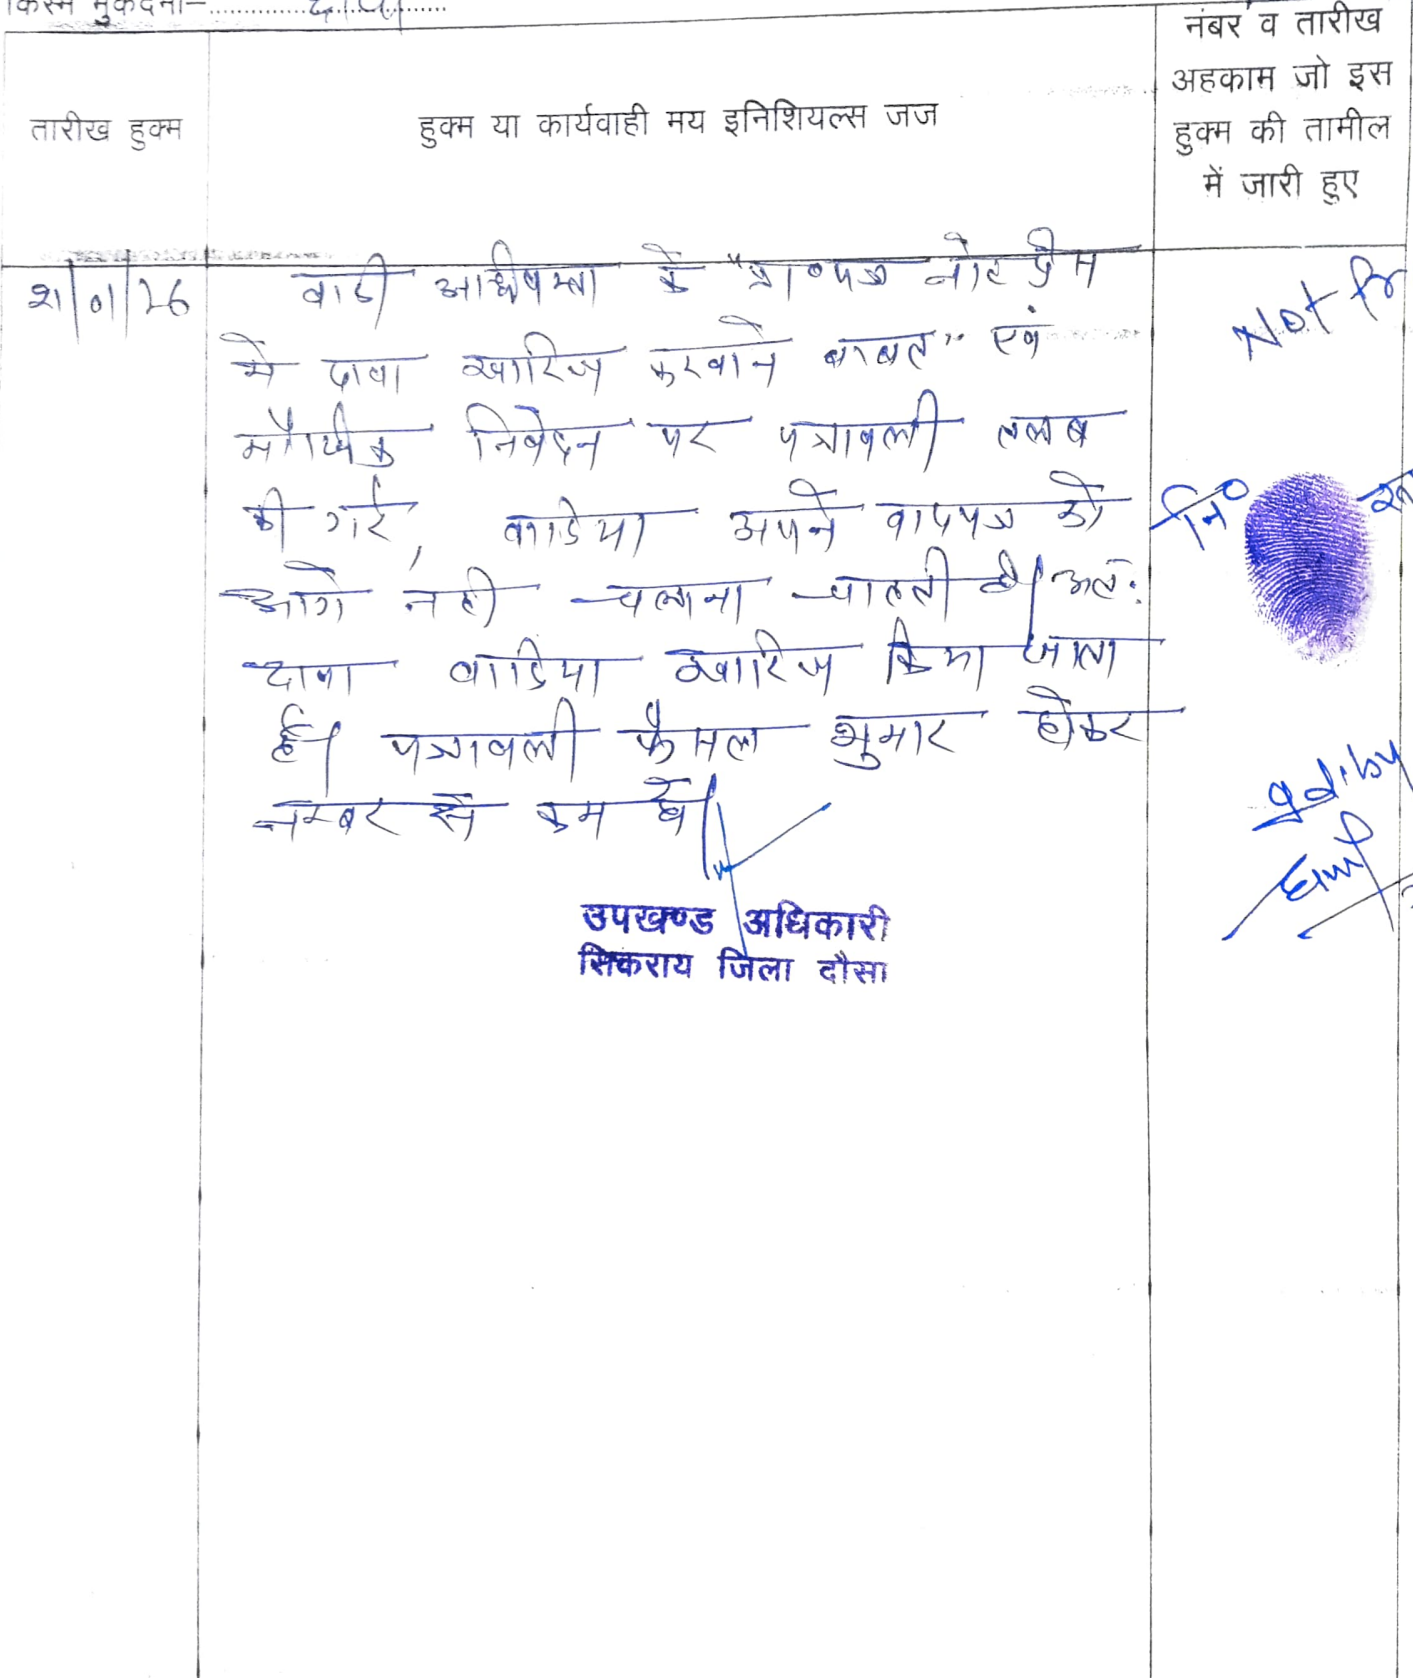 किस्म मुकदमा- दावा
तारीख हुक्म
हुक्म या कार्यवाही मय इनिशियल्स जज
नंबर व तारीख
अहकाम जो इस
हुक्म की तामील
में जारी हुए
21/01/26
वादी अधिवक्ता के "प्रा०पत्र नोट प्रेस
में दावा खारिज करवाने बाबत" एवं
मौखिक निवेदन पर पत्रावली तलब
की गई, वादिया अपने वादपत्र को
आगे नही चलाना चाहती है। अतः
दावा वादिया खारिज किया जाता
है। पत्रावली फैसल शुमार होकर
नम्बर से कम हो।
उपखण्ड अधिकारी
सिकराय जिला दौसा
Not Pr
नि०